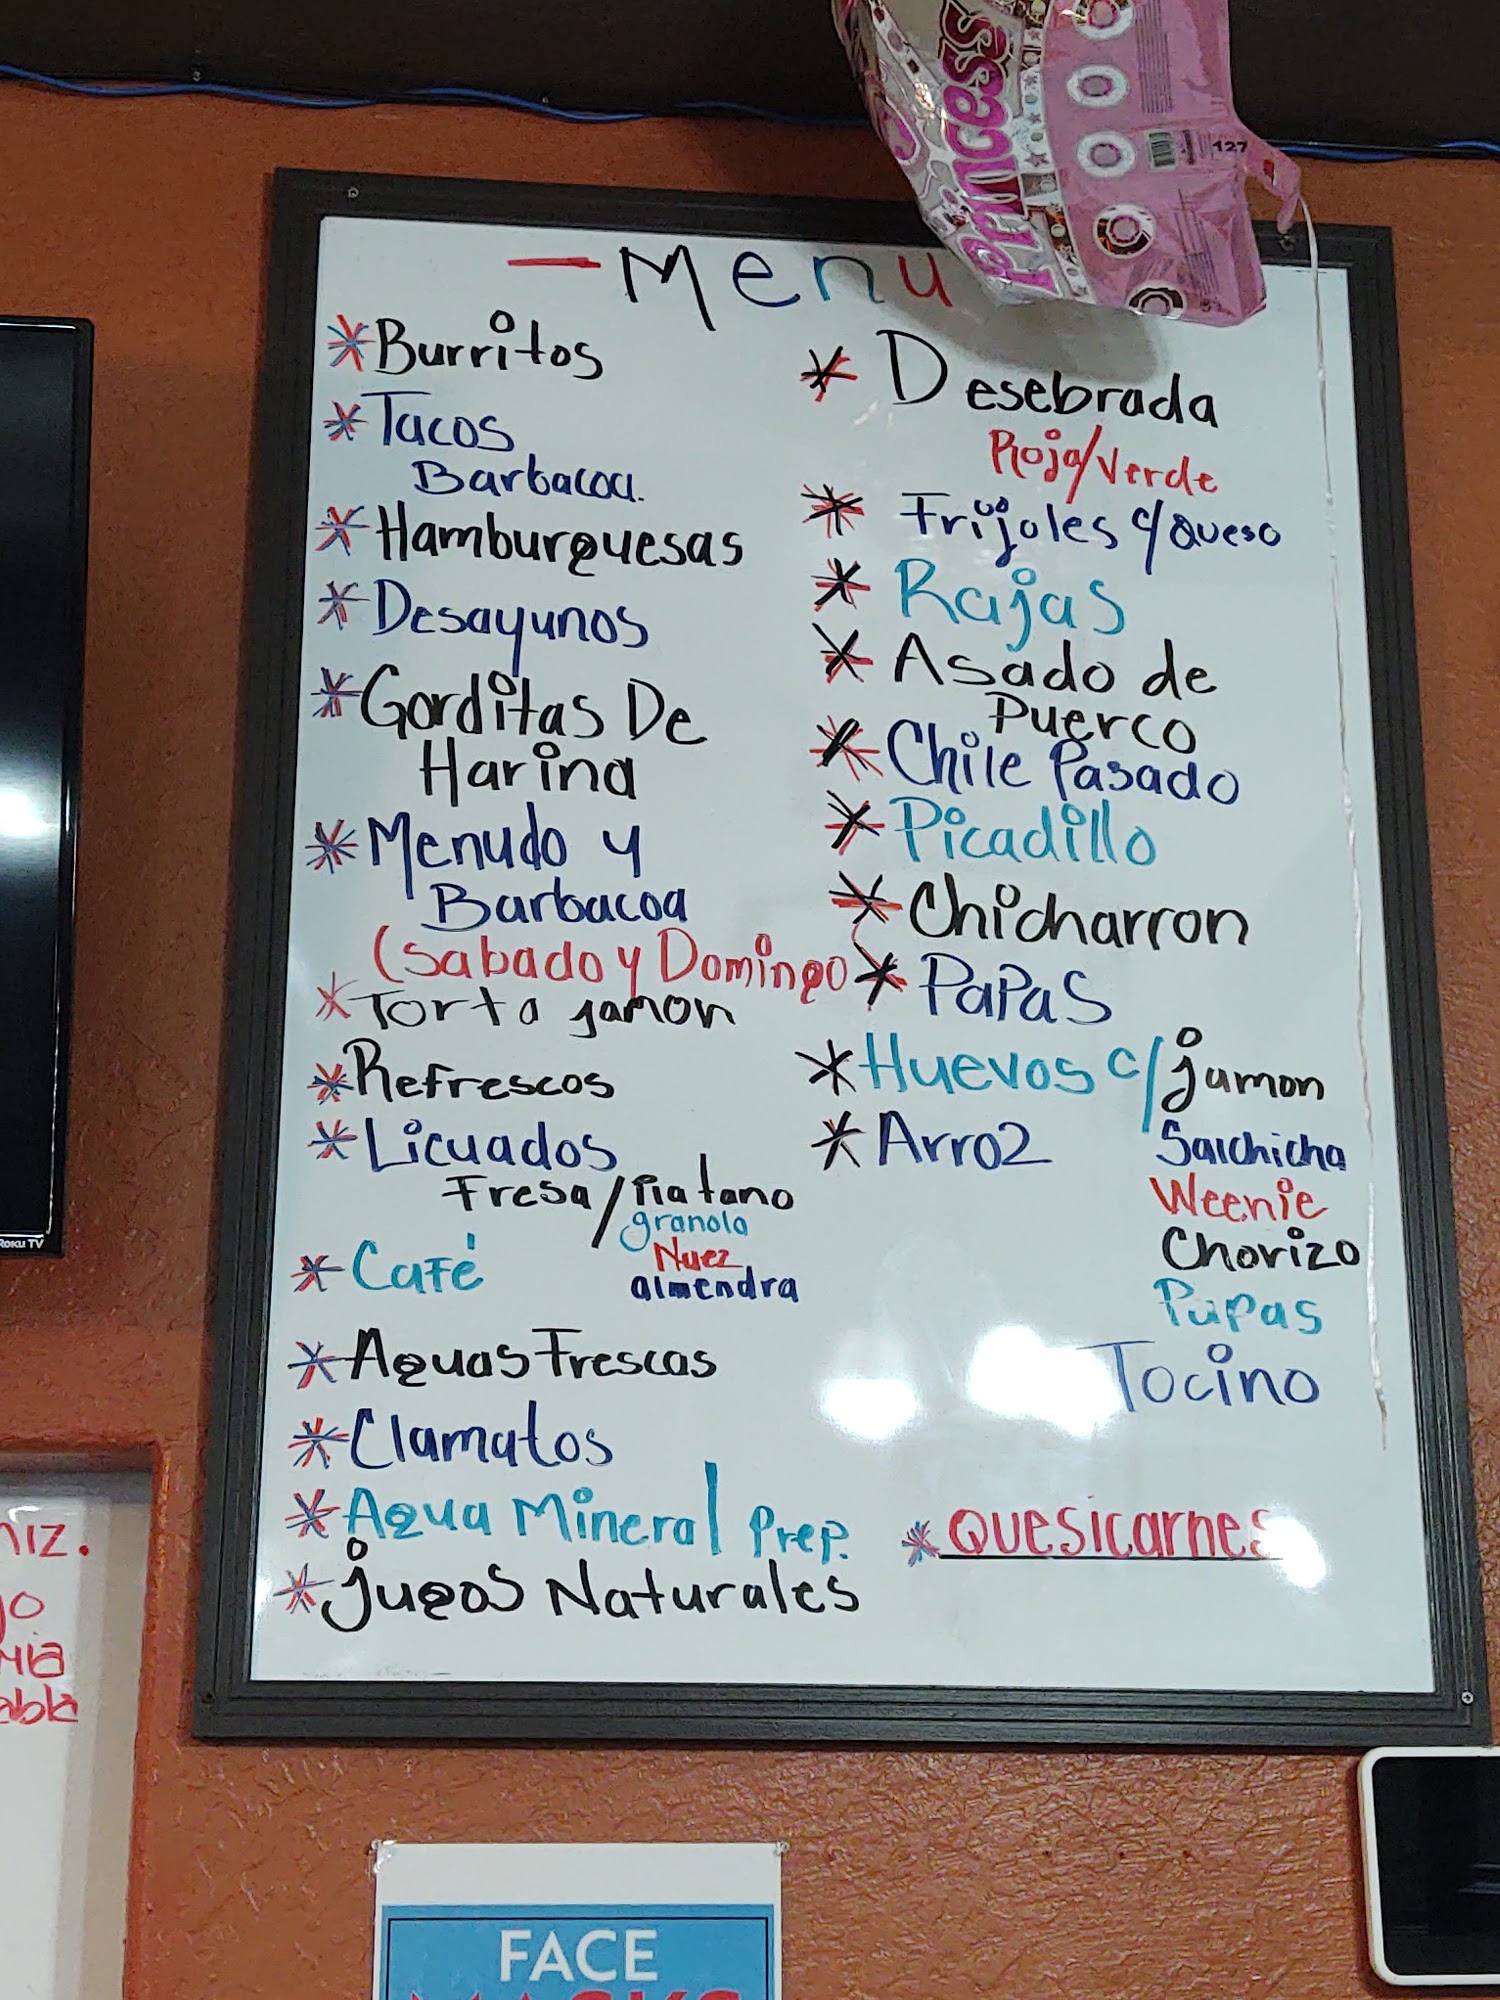 PRINCESS
127
- Menu
*Burritos
*Tacos
Barbacoa.
*Hamburguesas
*Desayunos
*Gorditas De
Harina
*Menudo y
Barbacoa
(Sabado y Domingo
*Torta jamon
*Refrescos
*Licuados
Fresa/Platano
granola
Nuez
almendra
*Café
*Aguas Frescas
*Clamatos
*Agua Mineral Prep.
*jugos Naturales
* Desebrada
Roja/Verde
* Frijoles c/Queso
* Rajas
* Asado de
Puerco
*Chile Pasado
*Picadillo
*Chicharron
*Papas
*Huevos c/jamon
Salchicha
Weenie
Chorizo
Papas
Tocino
*Arroz
*QUESICARNES
ROKU TV
FACE
MASKS